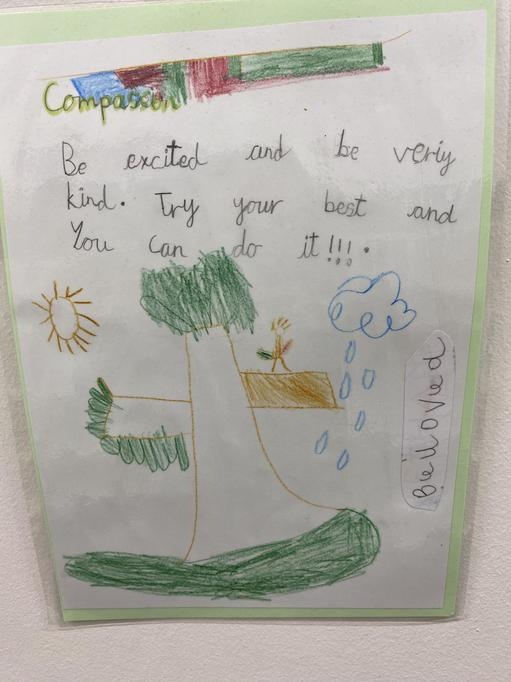 Compassion
Be excited and be veriy
kind. Try your best and
You can do it!!!.